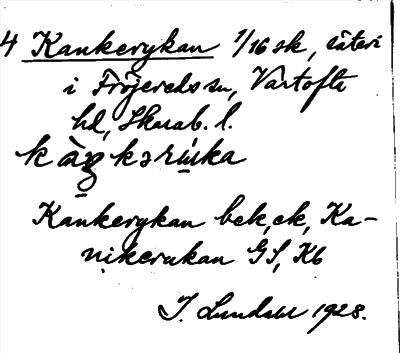 4 Kankerykan 1/16 sk, säteri
i Fröjereds sn, Vartofta
hd, Skarab. l.
kàŋkərúka
Kankerykan bek, ck, Ka-
nikerukan GS, Kb
J. Lundahl 1928.